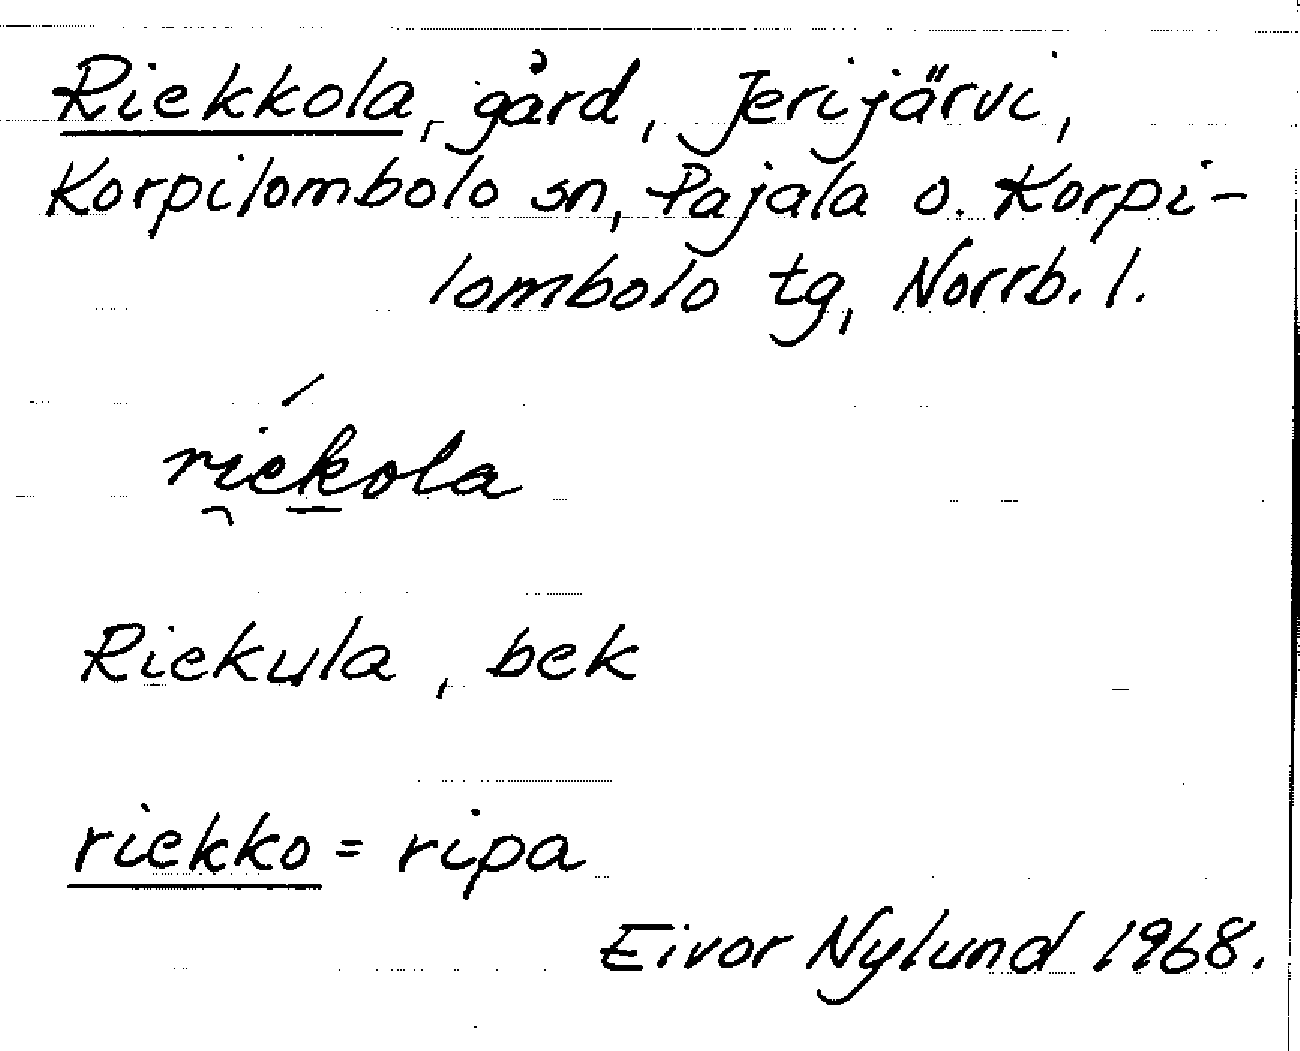 Riekkola, gård, Jerijärvi,
Korpilombolo sn, Pajala o. Korpi-
lombolo tg, Norrb. l.
ri̯ék̲ola
Riekula, bek
riekko = ripa
Eivor Nylund 1968.